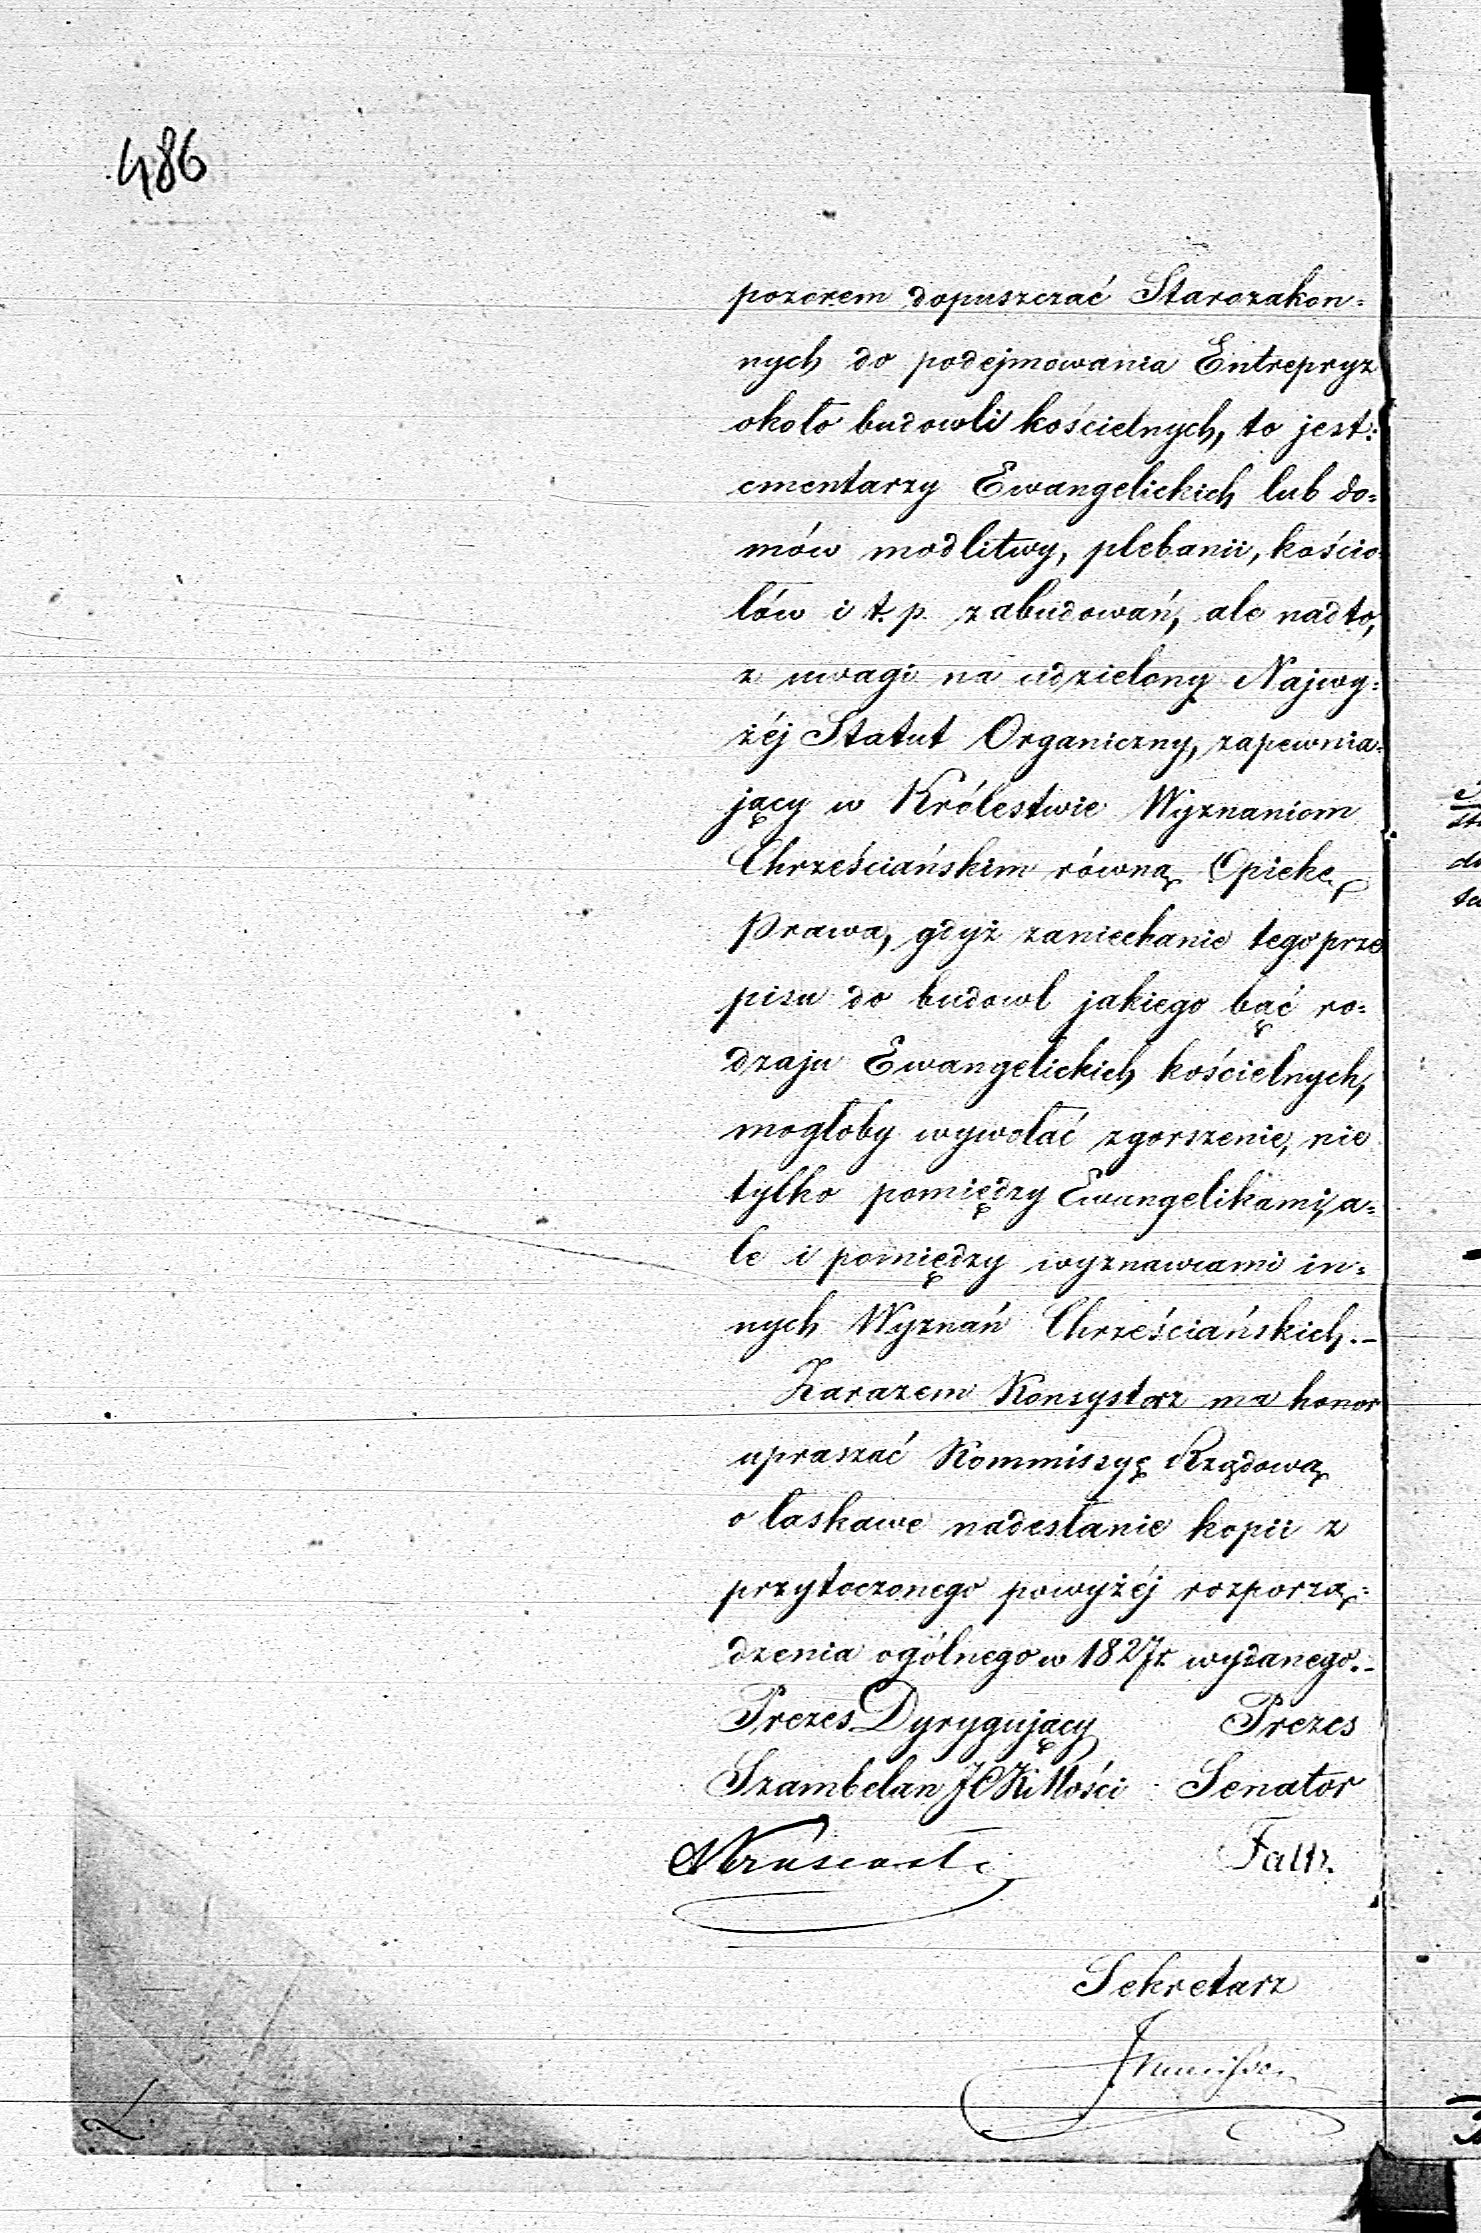 486
pozorem dopuszczać Starozakon=
nych do podejmowania Entrepryz
około budowli kościelnych, to jest:
cmentarzy Ewangelickich lub do=
mów modlitwy, plebanii, kościo
łów i t. p. zabudowań, ale nadto,
z uwagi na udzielony Najwy=
żéj Statut Organiczny, zapewnia=
jący w Królestwie Wyznaniom
Chrześciańskim równą Opiekę
Prawa, gdyż zaniechanie tego prze
pisu do budowl jakiego bąć ro=
dzaju Ewangelickich kościelnych,
mogłoby wywołać zgorszenie, nie
tylko pomiędzy Ewangelikami, a=
le i pomiędzy wyznawcami in=
nych Wyznań Chrześciańskich.-
Zarazem Konsystorz ma honor
upraszać Kommissyę Rządową
o łaskawe nadesłanie kopii z
przytoczonego powyżéj rozporzą=
dzenia ogólnego w 1827 r. wydanego.-
Prezes Dyrygujący Prezes
Szambelan JCKMości Senator
Sekretarz